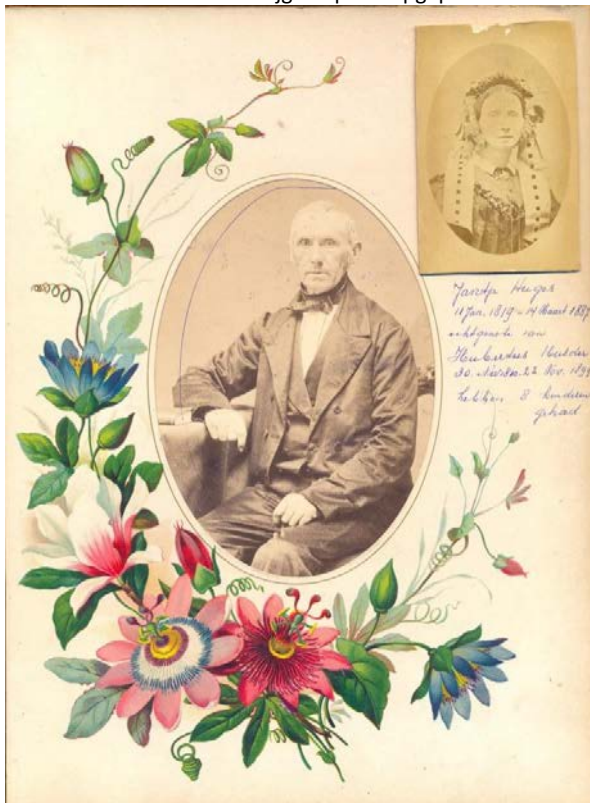 Jantje Huges
11 Jan. 1819 - 14 Maart 1887
echtgenote van
Hubertus Mulder
22 Nov. 1899
hebben 8 kinderen
gehad